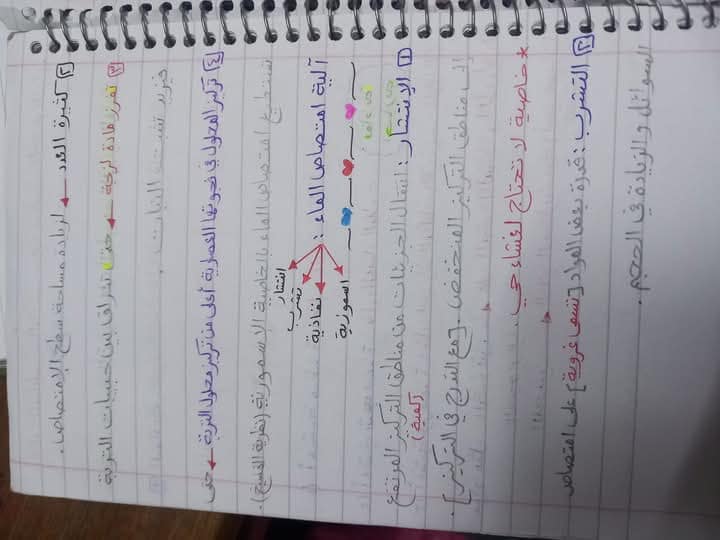 [2] كثيرة العدد ← لزيادة مساحة سطح الامتصاص .
[3] تفرز مادة لزجة ← حتى تنزلق بين حبيبات التربة
فيزيد تثبيت النبات .
[4] تركيز المحلول في فجوتها العصارية أعلى من تركيز محلول التربة ← حتى
تستطيع امتصاص الماء بالخاصية الإسموزية (نظرية النسخ) .
آلية امتصاص الماء :
انتشار
تشرب
نفاذية
اسموزية
[1] الإنتشار : انتقال الجزيئات من مناطق التركيز المرتفع
(كمية)
إلى مناطق التركيز المنخفض . [مع التدرج في التركيز] .
* خاصية لا تحتاج لغشاء حي .
[2] التشرب : قدرة بعض المواد [تسمى غروية] على امتصاص
السوائل والزيادة في الحجم .